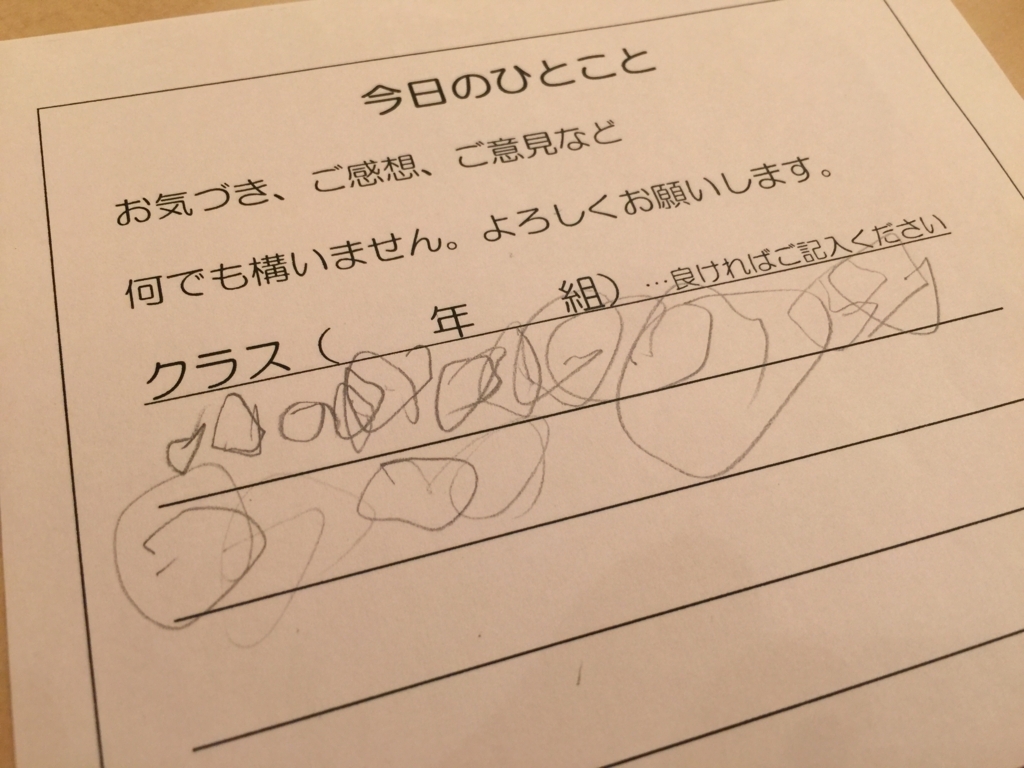 今日のひとこと
お気づき、ご感想、ご意見など
何でも構いません。よろしくお願いします。
クラス(　　年　　組)…良ければご記入ください